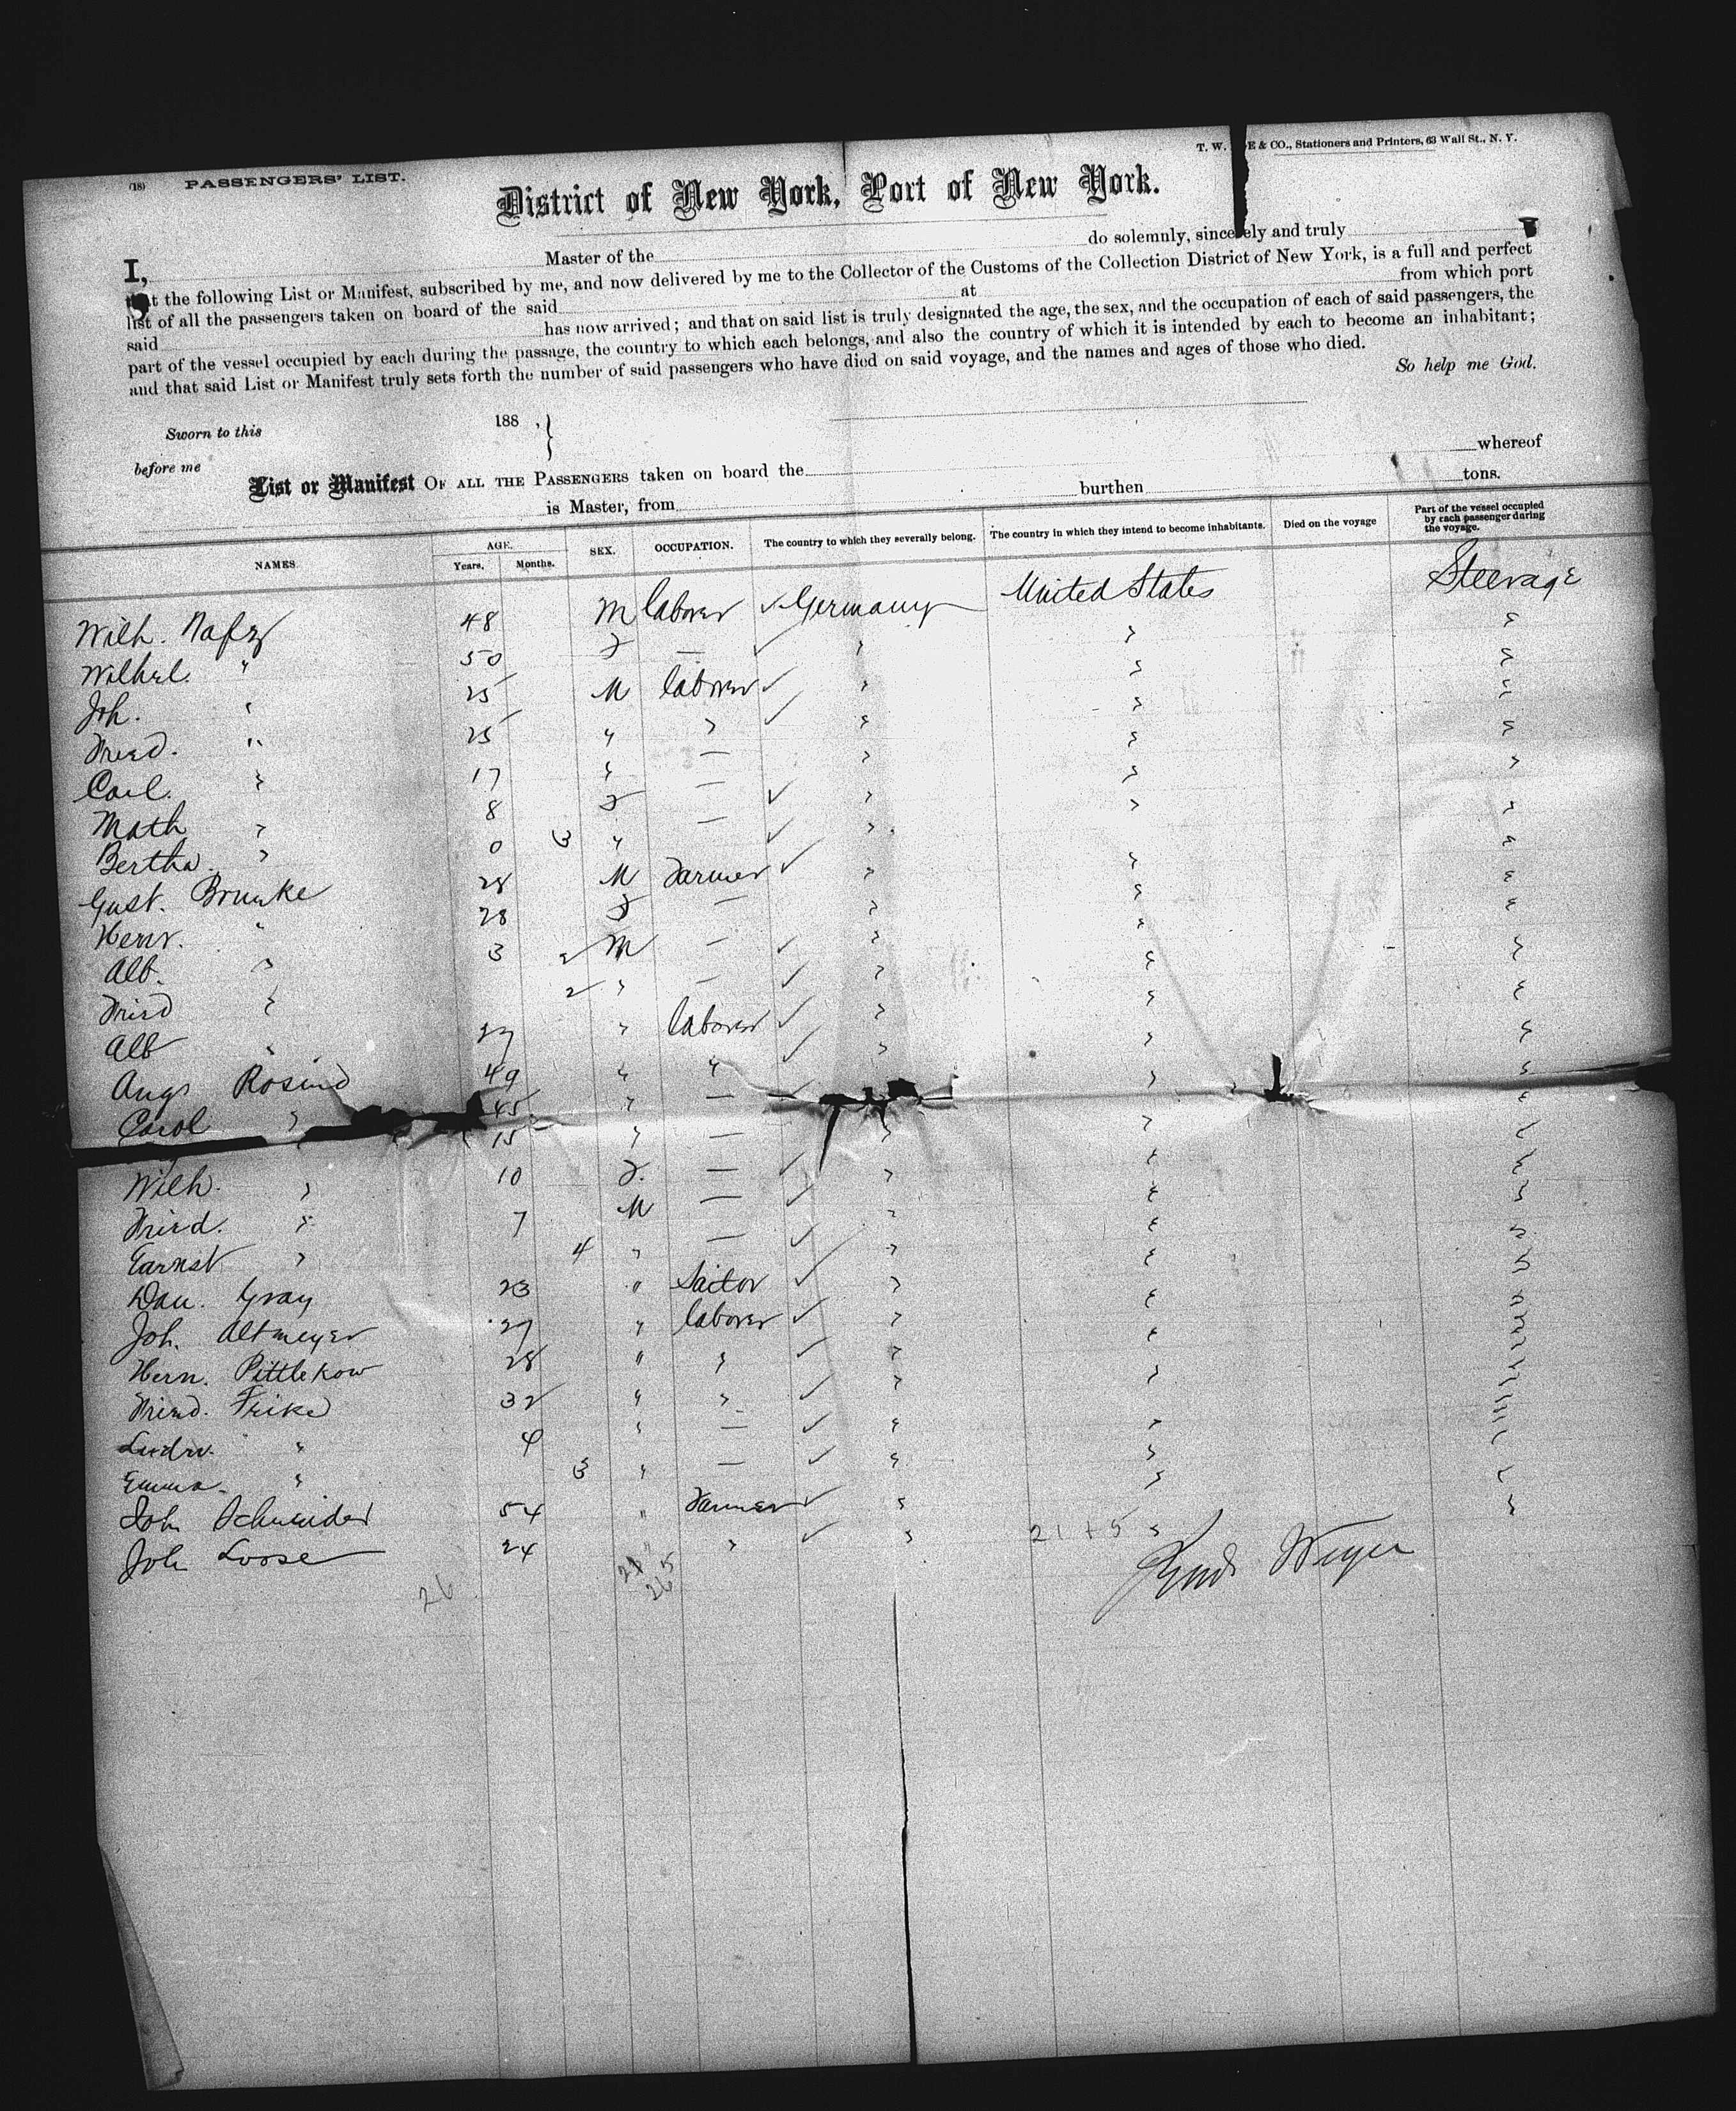 (18) PASSENGERS' LIST.
T. W. E & CO., Stationers and Printers, 63 Wall St., N. Y.
District of New York, Port of New York.
I, Master of the do solemnly, sincerely and truly
that the following List or Manifest, subscribed by me, and now delivered by me to the Collector of the Customs of the Collection District of New York, is a full and perfect
list of all the passengers taken on board of the said at from which port
said has now arrived; and that on said list is truly designated the age, the sex, and the occupation of each of said passengers, the
part of the vessel occupied by each during the passage, the country to which each belongs, and also the country of which it is intended by each to become an inhabitant;
and that said List or Manifest truly sets forth the number of said passengers who have died on said voyage, and the names and ages of those who died.
So help me God.
Sworn to this 188 , }
before me
List or Manifest OF ALL THE PASSENGERS taken on board the whereof
is Master, from burthen tons.
NAMES AGE. Years. Months. SEX. OCCUPATION. The country to which they severally belong. The country in which they intend to become inhabitants. Died on the voyage Part of the vessel occupied by each passenger during the voyage.
Wilh. 48 M laborer ✓ Germany United States Steerage
Wilhel. " 50 F — ✓ "
Joh. " 25 M laborer ✓ "
Fried. " 25 " " ✓ "
Carl. " 17 " — "
Math " 8 F — ✓ "
Bertha " 0 3 " — ✓ "
Gust. Brumke 28 M Farmer ✓ "
Herm. " 28 F — "
Alb. " 3 M — ✓ "
Fried " 2 " — ✓ "
Alb " 27 " laborer ✓ "
Aug. Rosind 49 " " ✓ "
Carol " 45 " — "
15 " — "
Wilh. " 10 F. — ✓ "
Fried. " 7 M — ✓ "
Earnst " 4 " — ✓ "
Dau. Gray 23 " Sailor ✓ "
Joh. Altmeyer 27 " laborer ✓ "
Hern. Pittlekow 28 " " ✓ "
Fried. Frike 32 " " ✓ "
Ludw. " 4 " — ✓ "
Emma " 3 " — ✓ "
Joh Schneider 54 " Farmer ✓ "
Joh Loose 24 " " ✓ " 21 + 5
26 21 5
26